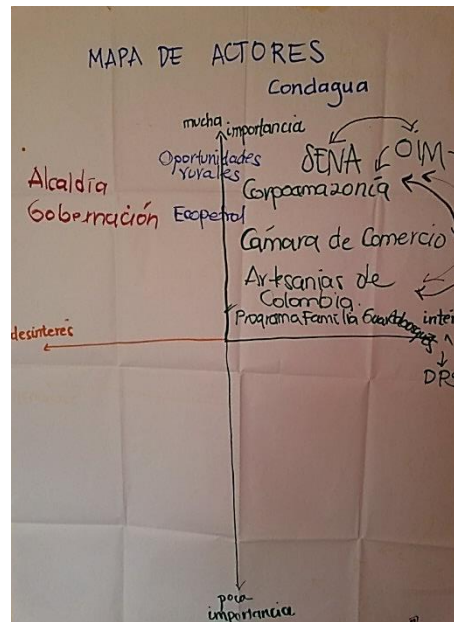 MAPA DE ACTORES
Condagua
mucha importancia
Oportunidades
rurales
SENA
OIM
Alcaldía
Corpoamazonía
Gobernación
Ecopetrol
Cámara de Comercio
Artesanías de
Colombia.
Programa Familia Guardabosques
desinterés
inter
DRS
poca
importancia